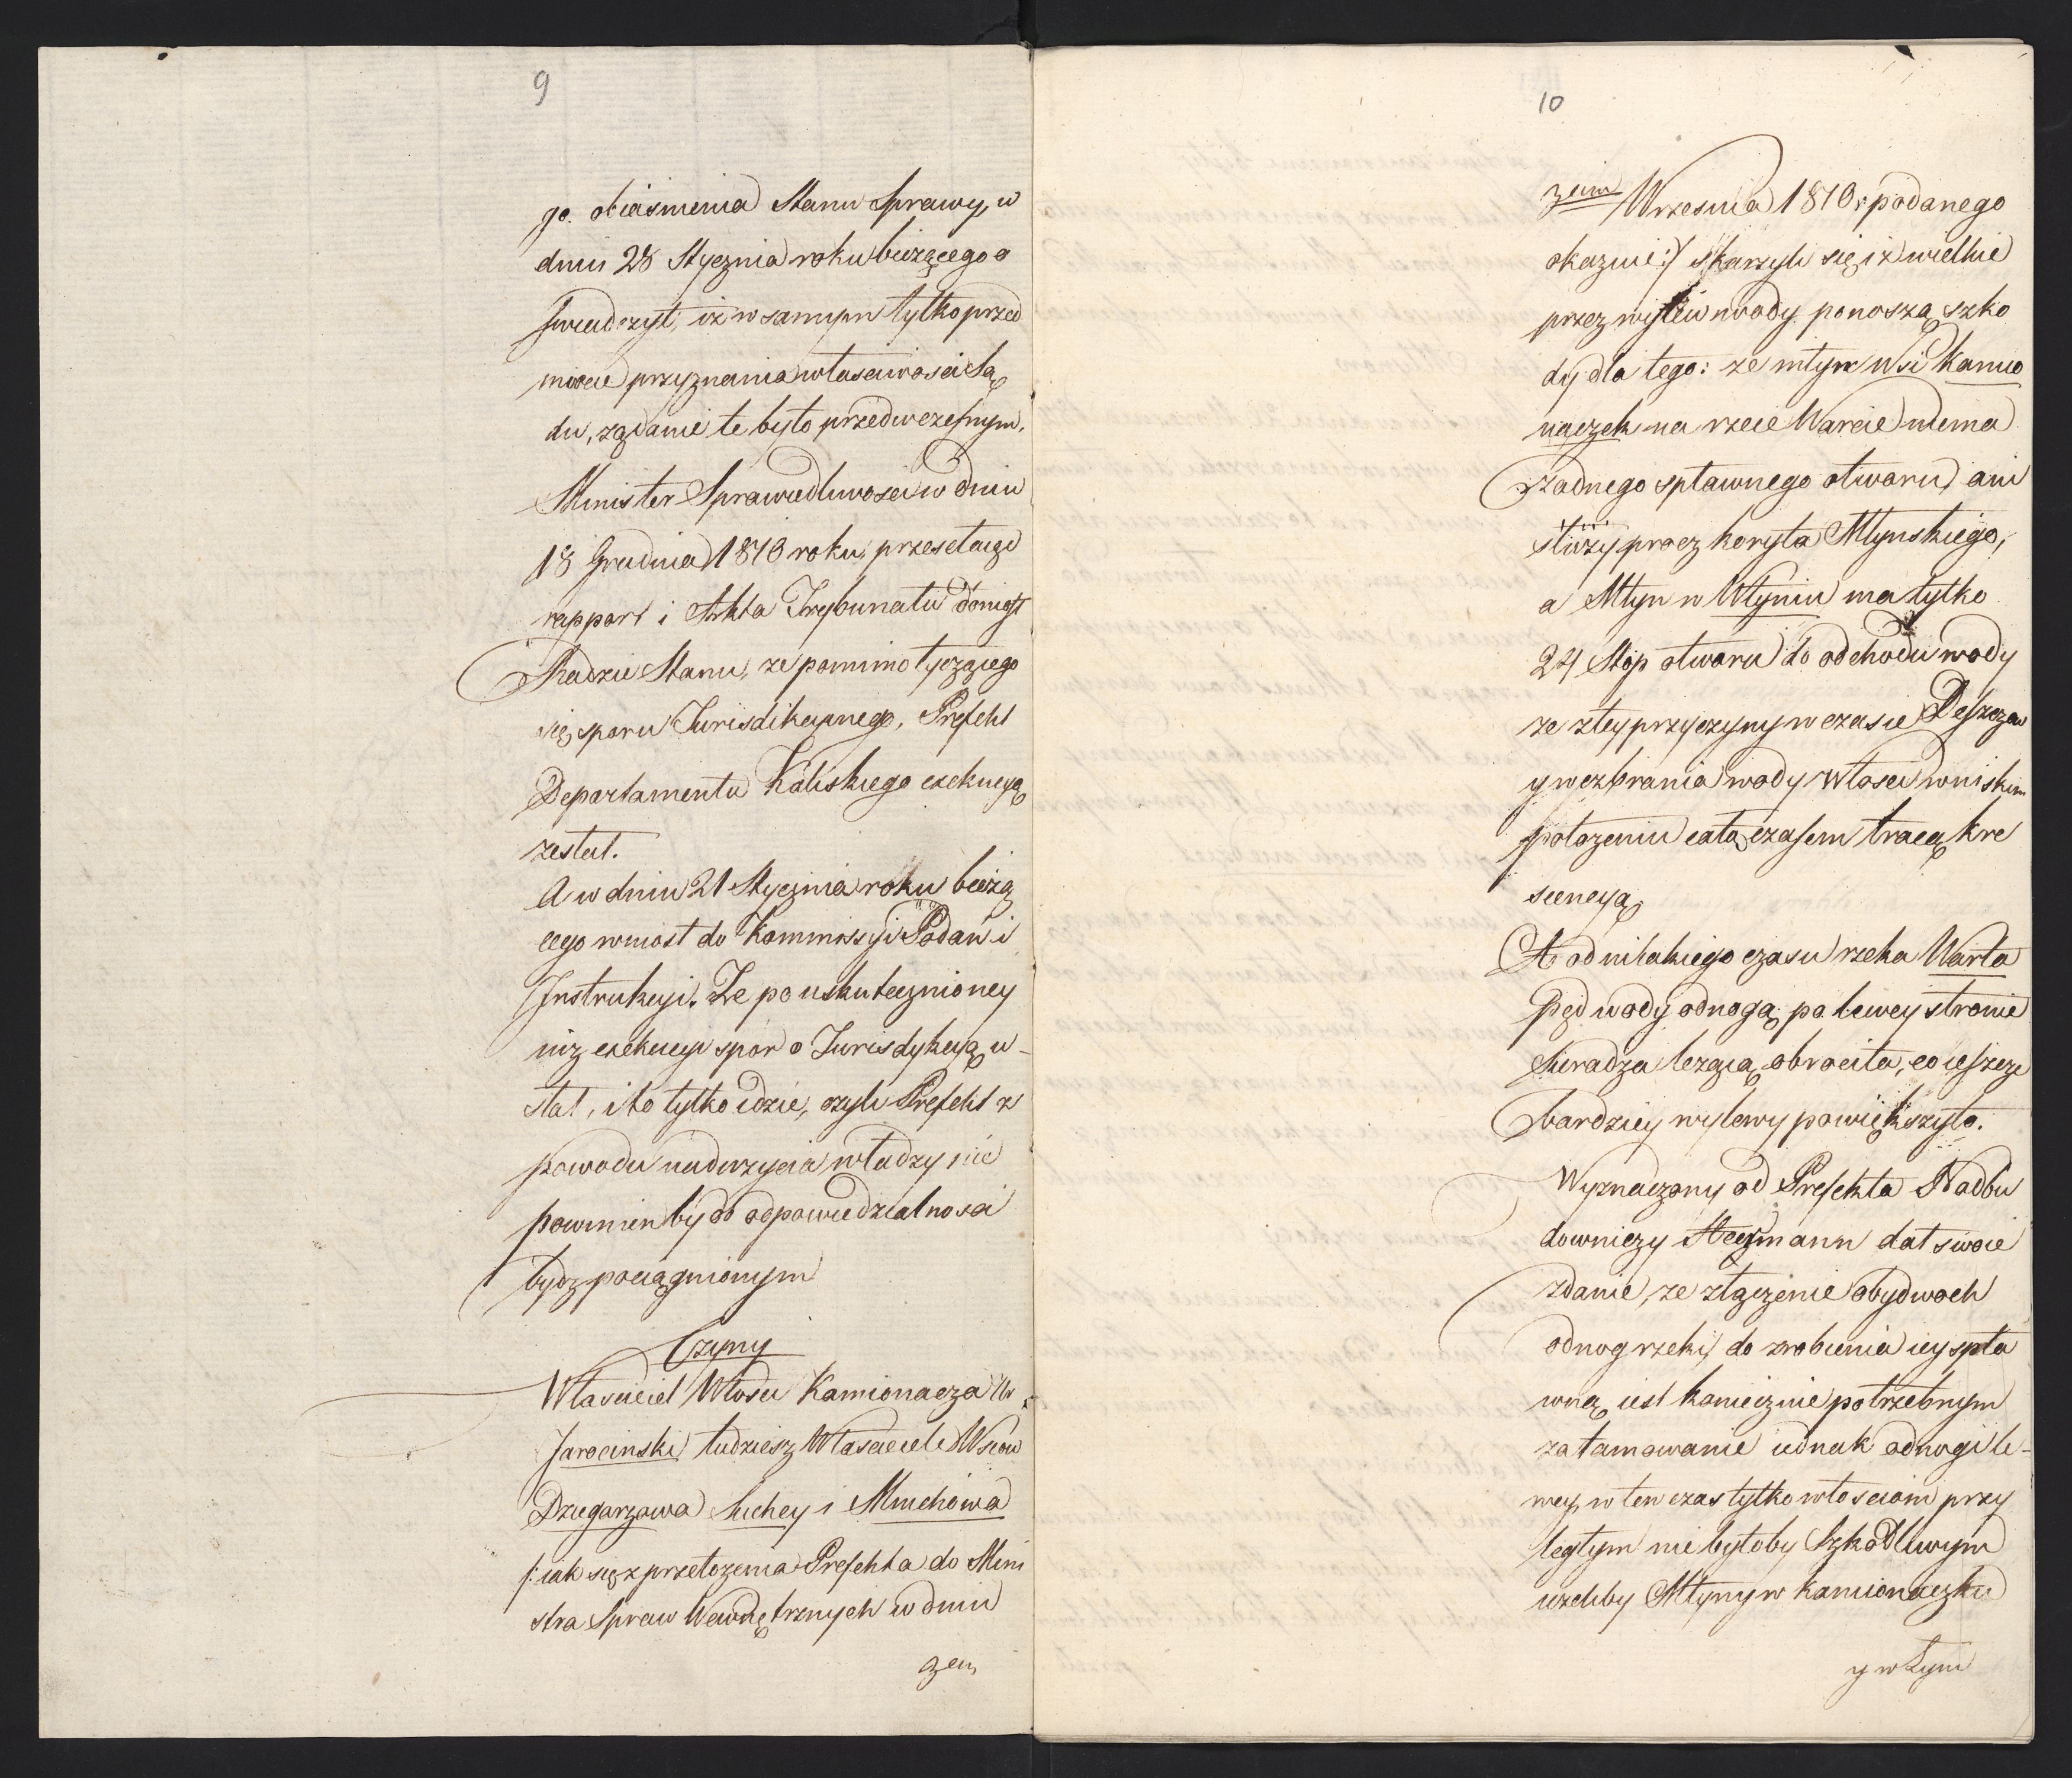 9
go. obiaśnienia Stanu Sprawy, w
dniu 28 Stycznia roku bieżącego o
świadczył, iż w samym tylko przed
miocie przyznania własciwosci Są
du, żądanie te było przedwczesnym.
Minister Sprawiedliwosci w dniu
18 Grudnia 1810 roku, przesełaiąc
rapport i Akta Trybunału doniosł
Radzie Stanu, ze pomimo tyczącego
się sporu Jurisdikcyinego, Prefekt
Departamentu Kaliskiego exekucyą
zesłał.
A w dniu 21 Stycznia roku bieżą
cego wniosł do Kommissyi Podań i
Instrukcyi. Ze po uskutecznioney
niż exekucyi spór o Jurisdykcyą u-
stał, i to tylko idzie, czyli Prefekt z
powodu nadużycia władzy nie
powinien by do odpowiedzialnosci
bydz pociągnionym
Czyny
Własciciel Włosci Kamionacza Ur
Jarocinski, tudziesz Własciciele Wsiow
Dzegarzawa Suchey i Mnichowa
/: iak się z przełozenia Prefekta do Mini
stra Spraw Wewnętrznych w dniu
zem
10
zem Wrzesnia 1810 r podanego
okazuie :/ skarzyli się iż wielkie
przez wylew wody ponoszą szko
dy dla tego: ze młyn Wsi Kamio
naczek na rzece Warcie niema
żadnego spławnego otworu, ani
śluzy procz koryta Młynskiego,
a Młyn w Włyniu ma tylko
24 Stop otworu do odchodu wody
ze z tey przyczyny w czasie Deszczow
y wezbrania wody Włosci w niskim
położeniu całą czasem tracą kre
scencyą
A od niiakiego czasu rzeka Warta
Pęd wody odnogą po lewey stronie
Sieradza lezącą obrociła, co ieszcze
bardziey wylewy powiększyło.
Wyznaczony od Prefekta Nadbu
downiczy Stegmann dał swoie
zdanie, ze złączenie obydwoch
odnog rzeki, do zrobienia iey spła
wną iest koniecznie potrzebnym
zatamowanie iednak odnogi le-
wey, w ten czas tylko włosciom przy
ległym nie byłoby Szkodliwym
iezeliby Młyny w Kamionaczku
y w Łyni